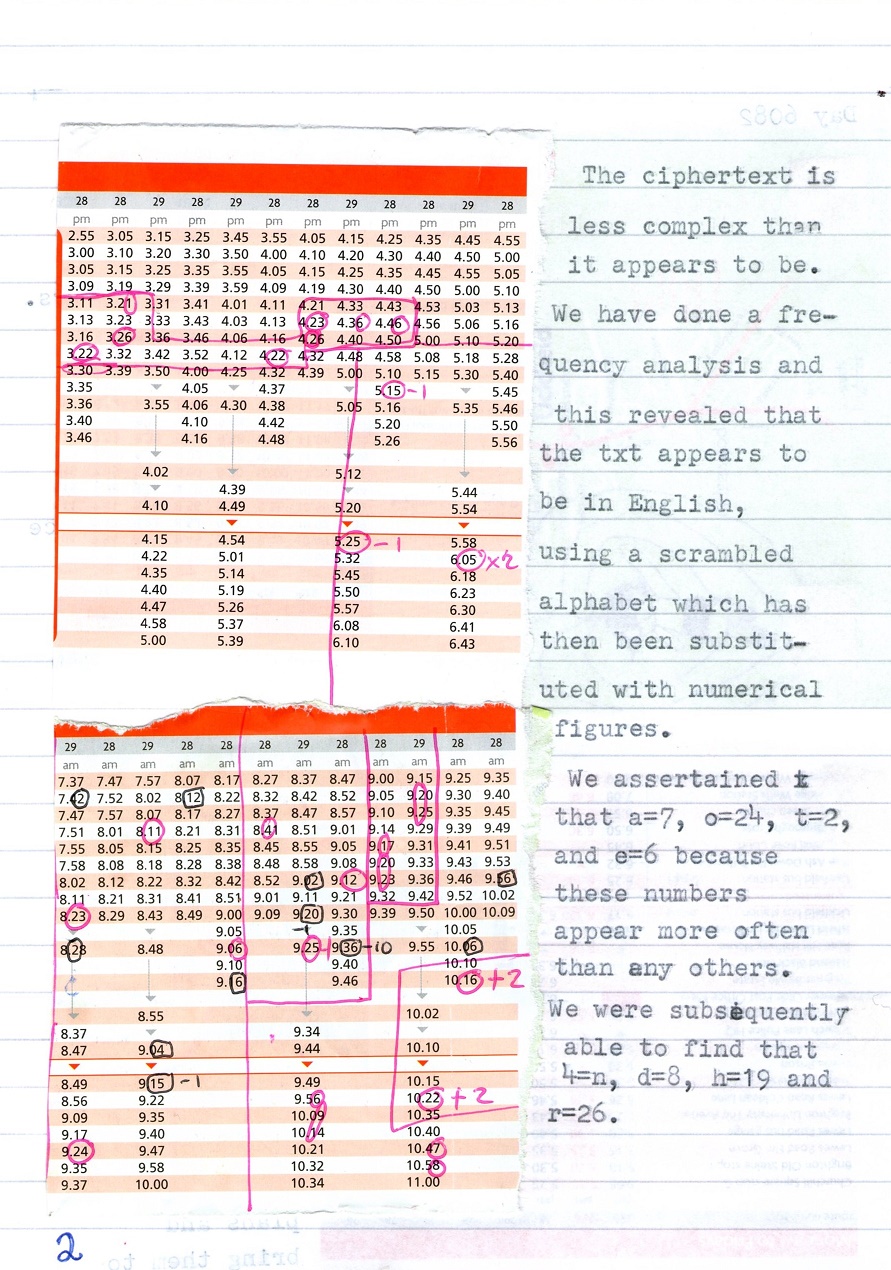 28 28 29 28 29 28 28 29 28 28 29 28
pm pm pm pm pm pm pm pm pm pm pm pm
2.55 3.05 3.15 3.25 3.45 3.55 4.05 4.15 4.25 4.35 4.45 4.55
3.00 3.10 3.20 3.30 3.50 4.00 4.10 4.20 4.30 4.40 4.50 5.00
3.05 3.15 3.25 3.35 3.55 4.05 4.15 4.25 4.35 4.45 4.55 5.05
3.09 3.19 3.29 3.39 3.59 4.09 4.19 4.30 4.40 4.50 5.00 5.10
3.11 3.21 3.31 3.41 4.01 4.11 4.21 4.33 4.43 4.53 5.03 5.13
3.13 3.23 3.33 3.43 4.03 4.13 4.23 4.36 4.46 4.56 5.06 5.16
3.16 3.26 3.36 3.46 4.06 4.16 4.26 4.40 4.50 5.00 5.10 5.20
3.22 3.32 3.42 3.52 4.12 4.22 4.32 4.48 4.58 5.08 5.18 5.28
3.30 3.39 3.50 4.00 4.25 4.32 4.39 5.00 5.10 5.15 5.30 5.40
3.35 4.05 4.37 5.15 -1 5.45
3.36 3.55 4.06 4.30 4.38 5.05 5.16 5.35 5.46
3.40 4.10 4.42 5.20 5.50
3.46 4.16 4.48 5.26 5.56
4.02 5.12
4.39 5.44
4.10 4.49 5.20 5.54
4.15 4.54 5.25 -1 5.58
4.22 5.01 5.32 6.05 x2
4.35 5.14 5.45 6.18
4.40 5.19 5.50 6.23
4.47 5.26 5.57 6.30
4.58 5.37 6.08 6.41
5.00 5.39 6.10 6.43
29 28 29 28 28 28 28 28 28 29 28 28
am am am am am am am am am am am am
7.37 7.47 7.57 8.07 8.17 8.27 8.37 8.47 9.00 9.15 9.25 9.35
7.42 7.52 8.02 8.12 8.22 8.32 8.42 8.52 9.05 9.20 9.30 9.40
7.47 7.57 8.07 8.17 8.27 8.37 8.47 8.57 9.10 9.25 9.35 9.45
7.51 8.01 8.11 8.21 8.31 8.41 8.51 9.01 9.14 9.29 9.39 9.49
7.55 8.05 8.15 8.25 8.35 8.45 8.55 9.05 9.17 9.31 9.41 9.51
7.58 8.08 8.18 8.28 8.38 8.48 8.58 9.08 9.20 9.33 9.43 9.53
8.02 8.12 8.22 8.32 8.42 8.52 9.02 9.12 9.23 9.36 9.46 9.56
8.11 8.21 8.31 8.41 8.51 9.01 9.11 9.21 9.32 9.42 9.52 10.02
8.23 8.29 8.43 8.49 9.00 9.09 9.20 9.30 9.39 9.50 10.00 10.09
9.05 -1 9.35 10.05
8.28 8.48 9.06 9.25 +1 9.36 -10 9.55 10.06
9.10 9.40 10.10
9.16 9.46 10.16 +2
8.55 10.02
8.37 9.34
8.47 9.04 9.44 10.10
8.49 9.15 -1 9.49 10.15
8.56 9.22 9.56 10.22 +2
9.09 9.35 10.09 10.35
9.17 9.40 10.14 10.40
9.24 9.47 10.21 10.47
9.35 9.58 10.32 10.58
9.37 10.00 10.34 11.00
2
The ciphertext is
less complex than
it appears to be.
We have done a fre-
quency analysis and
this revealed that
the txt appears to
be in English,
using a scrambled
alphabet which has
then been substit-
uted with numerical
figures.
We assertained
that a=7, o=24, t=2,
and e=6 because
these numbers
appear more often
than any others.
We were subsequently
able to find that
4=n, d=8, h=19 and
r=26.
Day 6082
plans and
bring them to